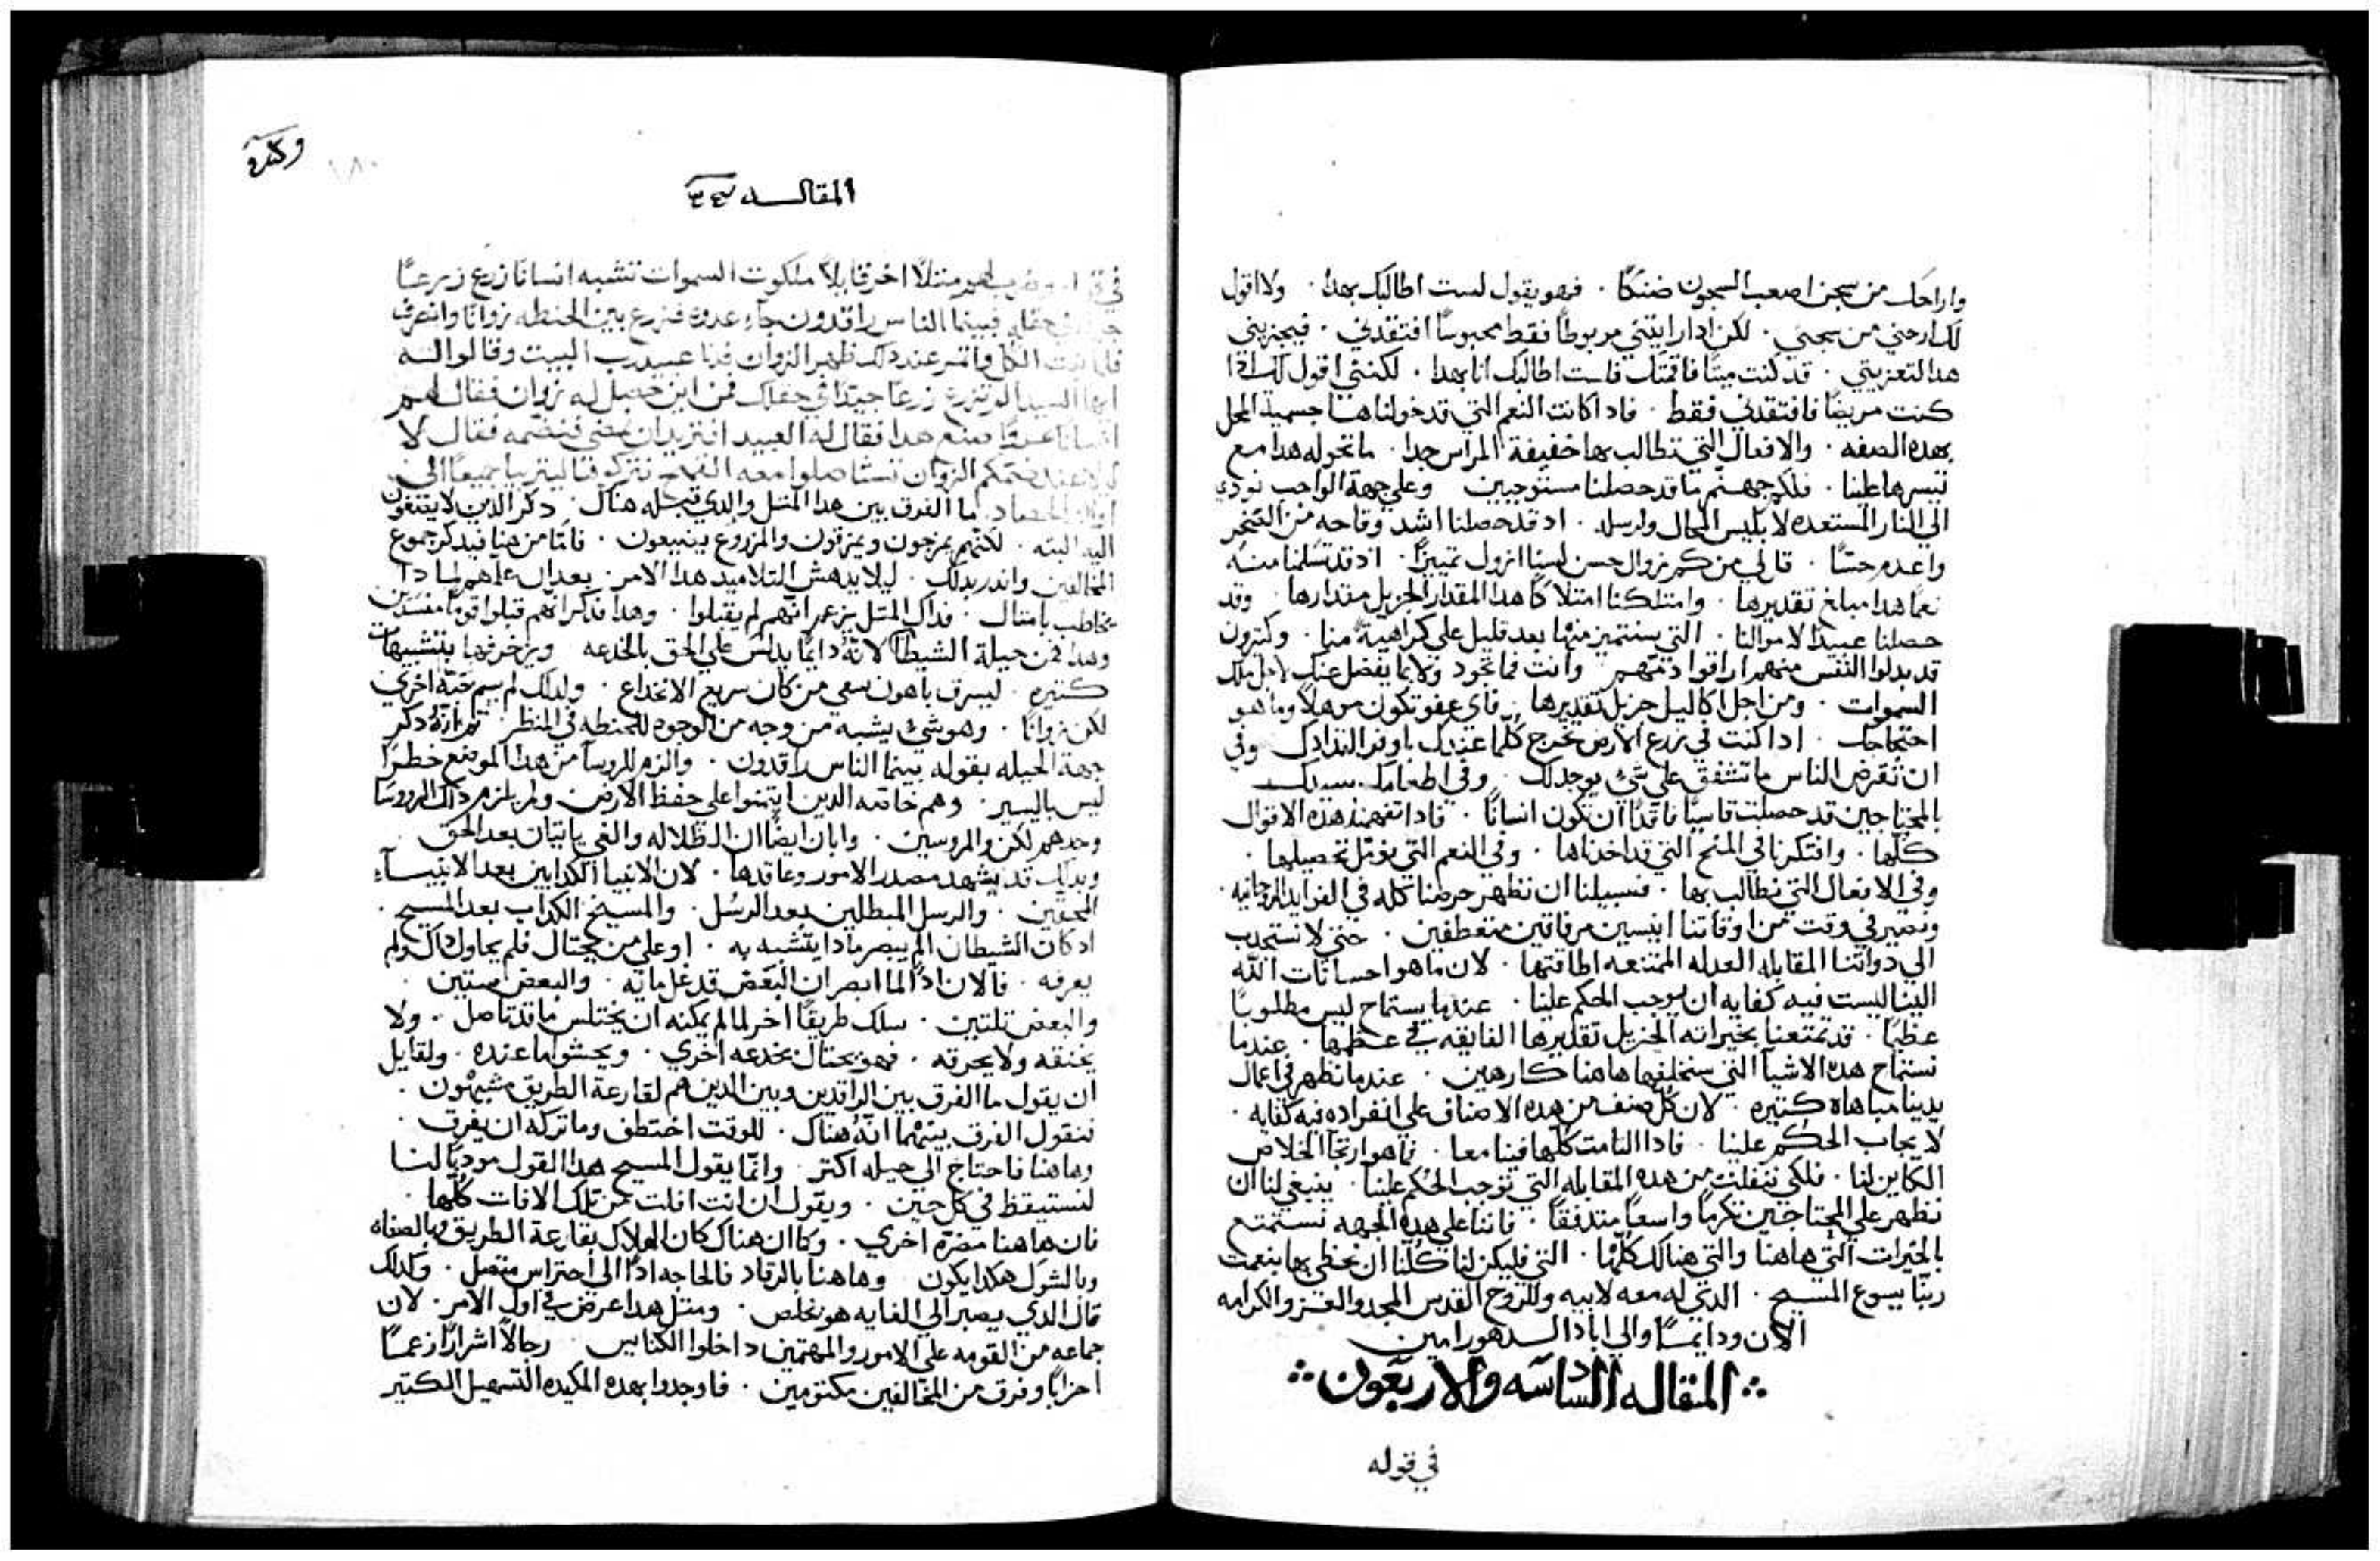 واراحك من سجن اصعب السجون ضنكًا . فهو يقول لست اطالبك بهدا . ولا اقول
لك ارحني من سجني . لكن ادا رايتني مربوطًا فقط محبوسًا افتقدني . فيجزيني
هدا لتعزيتي . قد كنت ميتًا فاقمتك فلست اطالبك انا بهدا . لكنني اقول لك ادا
كنت مريضًا فافتقدني فقط . فادا كانت النعم التي قد خولناها جسمية المحل
بهده الصفه . والافعال التي نطالب بها خفيفة المراس جدا . ما نخوله هدا مع
تيسرها علينا . فلكم جهنم ما قد حصلنا مستوجبين وعلي جهة الواجب نودي
الي النار المستعده لابليس المحال ولرسله . اد قد حصلنا اشد وقاحه من الصخر
واعدم حسًا . قال لي من كم نزوال حسن لسنا انزول تمييزًا . اد قد تسلمنا منه
نعمًا هدا مبلغ تقديرها . وامتلكنا امتلاكًا هدا المقدار الجزيل مقدارها . وقد
حصلنا عبيدًا لاموالنا . التي سنتميز منها بعد قليل علي كراهية منا . وكتيرون
قد بدلوا النفس منهم اراقوا دمهم وانت فما تجود ولا بما يفضل عنك لاجل ملك
السموات . ومن اجل اكاليل جزيل تقديرها . فاي عفو تكون موهلًا وما هو
احتجاجك . ادا كنت في زرع الارض تخرج كلما عندك باوفر التدادك وفي
ان تقرض الناس ما تشفق علي شيٍ يوجد لك . وفي اطعامك سيدك
بالمحتاجين قد حصلت قاسيًا فاقدًا ان تكون انسانًا . فادا تفهمنا هده الاقوال
كلها . وافتكرنا في المنح التي قد اخدناها . وفي النعم التي نومل تحصيلها .
وفي الافعال التي نطالب بها . فسبيلنا ان نظهر حرصنا كله في الفرايد الروحانيه .
ونصير في وقت من اوقاتنا انيسين مرفاقين متعطفين . حتي لا نستجدب
الي دواتنا المقابله العدله الممتنعه اطاقتها . لان ما هو احسانات الله
الينا اليست فيه كفايه ان يوجب الحكم علينا . عندما يستماح ليس مطلوبًا
عظيمًا . قد تمتعنا بخيراته الجزيل تقديرها الفايقه في عظمها . عندما
نستماح هده الاشيا التي سنخلفها هاهنا كارهين . عندما نظهر في اعمال
يدينا مباهاه كتيره . لان كل صنف من هده الاصناف علي انفراده فيه كفايه .
لايجاب الحكم علينا . فادا التامت كلها فينا معا . فما هو ارتجا الخلاص
الكاين لنا . فلكي نتفلت من هده المقابله التي توجب الحكم علينا . ينبغي لنا ان
نظهر علي المحتاجين تكرمًا واسعًا متدفقًا . فاننا علي هده الجهه نستمتع
بالخيرات التي هاهنا والتي هنالك كلها . التي فليكن لنا كلنا ان نحظي بها بنعمت
ربنا يسوع المسيح . الدي له معه لابيه وللروح القدس المجد والعز والكرامه
الان ودايمًا والي اباد الدهور امين
المقاله السادسه والاربعون
في قوله
المقاله
متلًا اخر قايلًا ملكوت السموات تشبه انسانًا زرع زرعًا
في حقله فبينما الناس راقدون جاء عدوه فزرع بين الحنطه زوانًا وانصرف
الكل واتمر عند دلك ظهر الزوان فدنا عبيد رب البيت وقالوا له
ايها السيد الم تزرع زرعًا جيدًا في حقلك فمن اين حصل له زوان فقال لهم
صنع هدا فقال له العبيد افتريد ان نمضي فنضمه فقال لا
عند ضمكم الزوان معه القمح نتركوهما ليتربيا جميعًا الي
الحصاد ما الفرق بين هدا المتل والدي قبله هناك . دكر الدين لا يصغون
اليه البته . لكنهم يمرحون ويمرقون والمزروع يبيعون . فاما من هنا فيدكر جموع
المخالفين واندر بدلك . ليلا يدهش التلاميد هدا الامر . بعد ان علمهم لمادا
يخاطب بامتال . فداك المتل يزعم انهم لم يقبلوا . وهدا فدكر انهم قبلوا قومًا مفسدين
وهدا فمن حيلة الشيطان لانه دايمًا يدلس علي الحق بالخدعه ويزخرفها بتشبيهات
كتيره . ليسرق باهون سعي من كان سريع الانخداع . ولدلك لم يسم حبه اخري
لكن زوانًا . وهو شيٍ يشبه من وجه من الوجوه للحنطه في المنظر . تم انه دكر
جهة الحيله بقوله بينما الناس راقدون . والزم للروسا من هدا الموضع خطرًا
ليس باليسير . وهم خاصه الدين ايتمنوا علي حفظ الارض . ولم يلزم دلك الروسا
وحدهم لكن والمروسين . وابان ايضًا ان الظلاله والغي ياتيان بعد الحق .
وبدلك قد يشهد مصدر الامور وعاقدها . لان الانبيا الكدابين بعد الانبيآء
المحقين . والرسل المبطلين بعد الرسل . والمسيح الكداب بعد المسيح .
اد كان الشيطان ان لم يبصر مادا يتشبه به . او علي من يحتال فلم يحاول دلك ولم
يعرفه . فالان ادًا لما ابصر ان البعض قد غل مايه . والبعض ستين .
والبعض تلتين . سلك طريقًا اخر لما لم يمكنه ان يختلس ما قد تاصل . ولا
يخنقه ولا يحرقه . فهو يحتال بخدعه اخري . ويحشو ما عنده . ولقايل
ان يقول ما الفرق بين الراقدين وبين الدين هم لقارعة الطريق مشبهون .
فنقول الفرق بينهما انه هناك . للوقت اختطف وما تركه ان يعرق .
وهاهنا فاحتاج الي حيله اكتر وانما يقول المسيح هدا القول موديًا لنا
لنستيقظ في كل حين . ويقول ان انت افلت من تلك الافات كلها .
فان هاهنا مضرة اخري . وكما ان هناك كان الهلاك بقارعة الطريق وبالصفاه
وبالشوك هكدا يكون وهاهنا بالرقاد فالحاجه ادًا الي احتراس متصل . وكدلك
قال الدي يصبر الي الغايه هو يخلص . ومتل هدا عرض في اول الامر . لان
جماعه من القومه علي الامور والمهتمين داخلوا الكنايس رجالًا اشرارًا زعمًا
احزابًا وفرق من المخالفين مكتومين . فاوجدوا بهده المكيده التسهيل الكتير